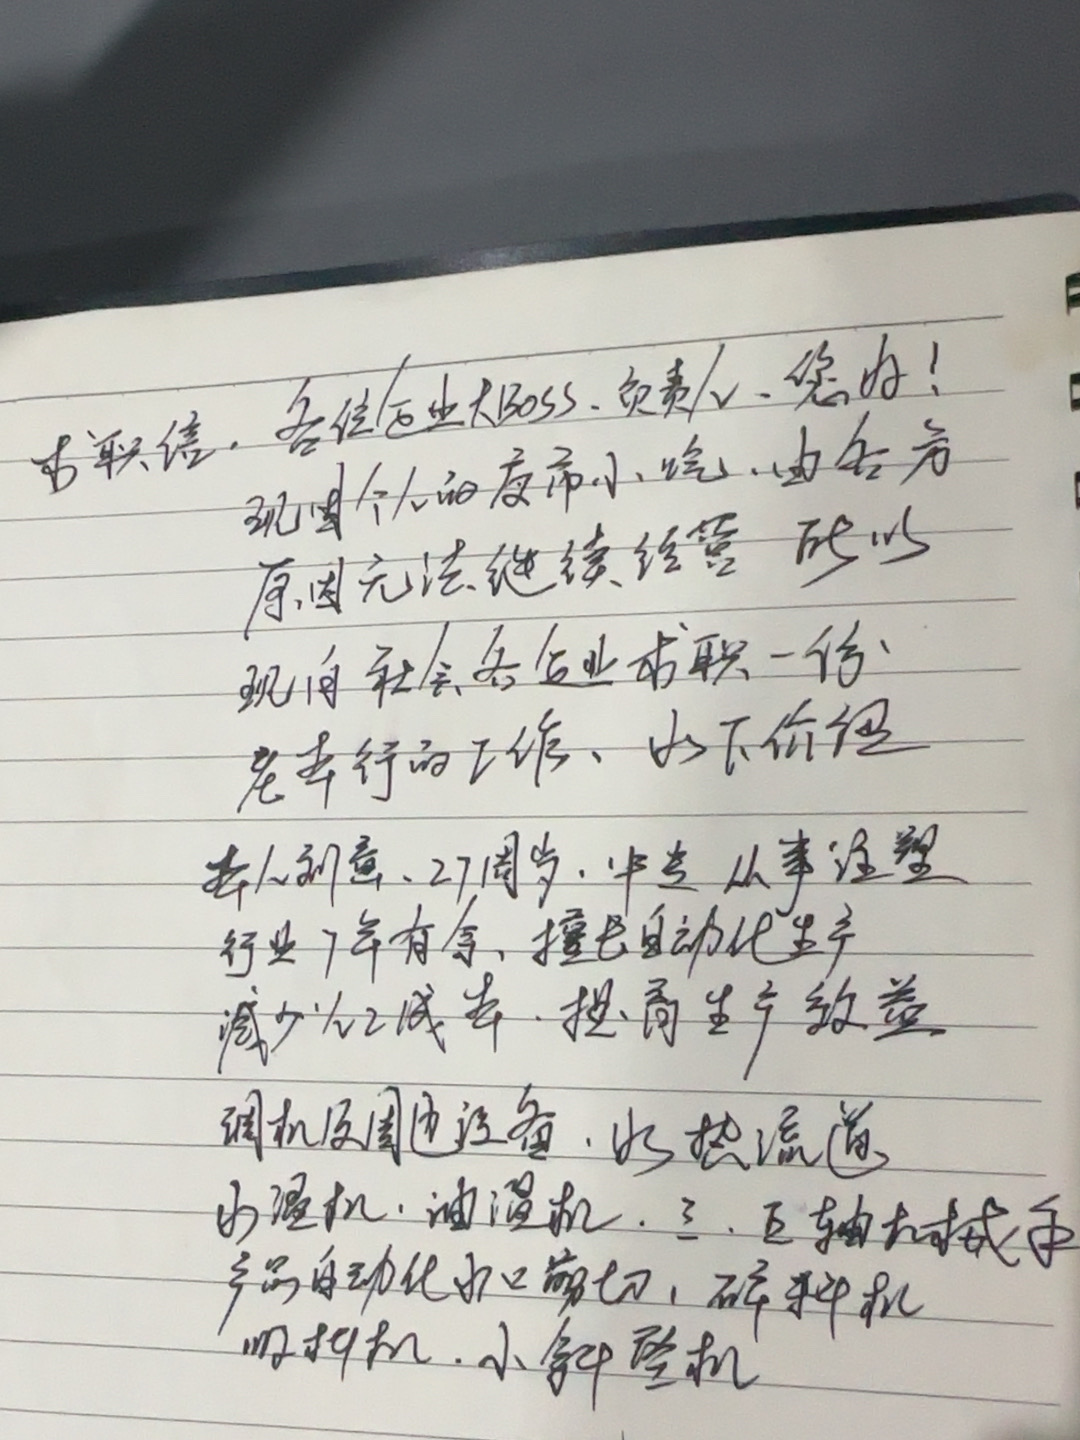 求职信. 各位企业大BOSS、负责人、您好!
现因个人的夜市小吃、由各方
原因无法继续经营 所以
现向社会各企业求职一份
老本行的工作、如下价绍
本人刘意、27周岁. 中专 从事注塑
行业7年有余、擅长自动化生产
减少人工成本. 提高生产效益
调机及周边设备. 如热流道
水温机. 油温机. 三. 五轴机械手
产品自动化水口剪切, 碎料机
吸料机. 小 机